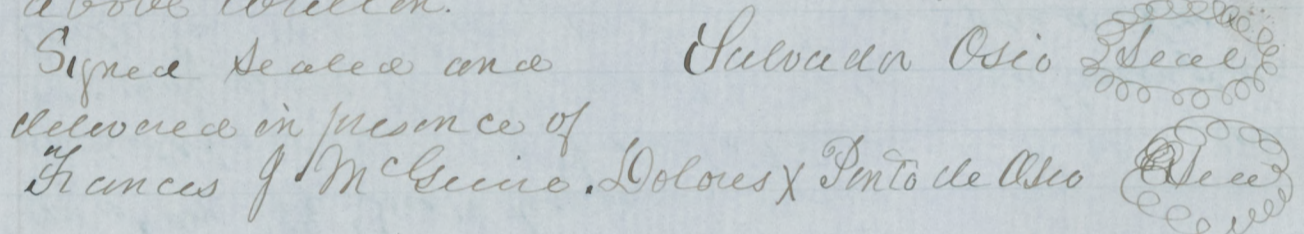 above written.
Signed sealed and Salvador Osio Seal
delivered in presence of
Frances J. McGuire. Dolores X Pinto de Osio Seal